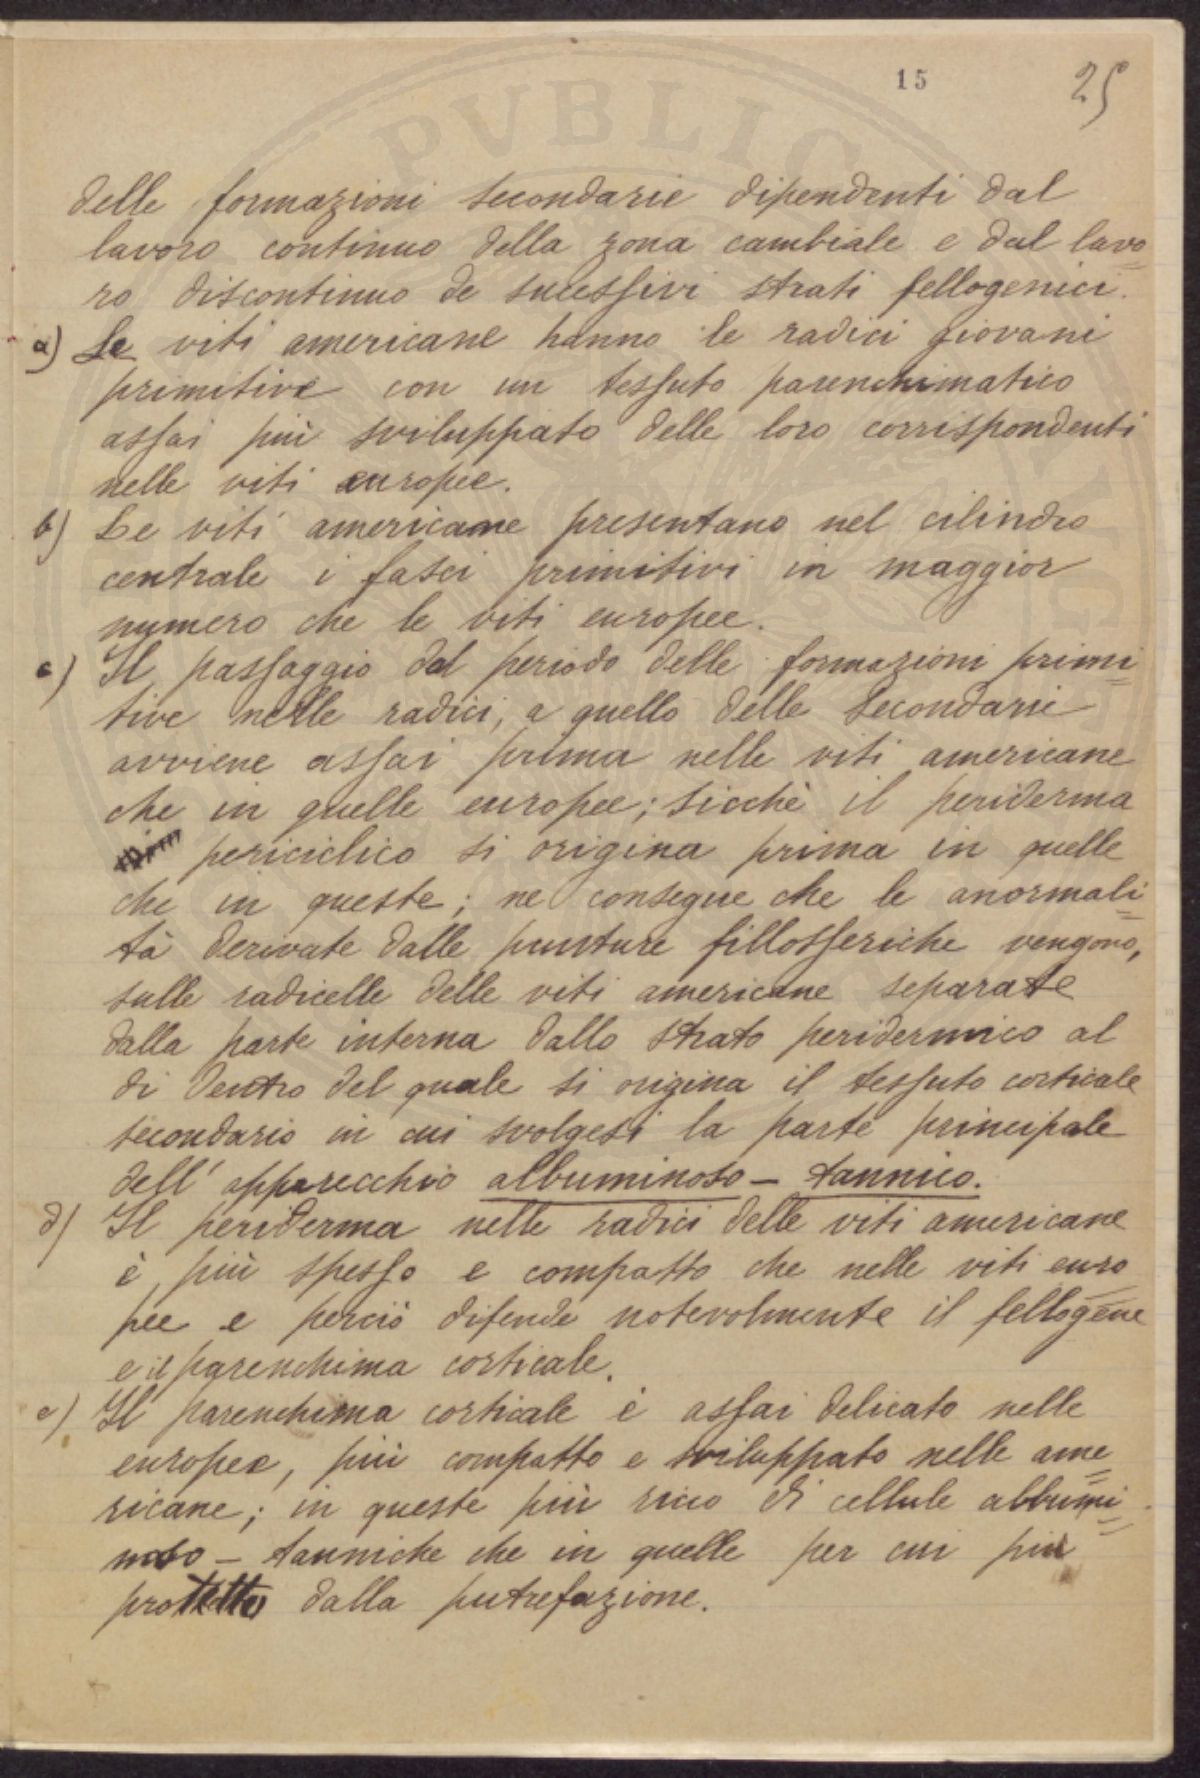 15
25
PVBLIC
delle formazioni secondarie dipendenti dal
lavoro continuo della zona cambiale e dal lavo=
ro discontinuo de sucessivi strati fellogenici.
a) Le viti americane hanno le radici giovani
primitive con un tessuto parenchimatico
assai più sviluppato delle loro corrispondenti
nelle viti europee.
b) Le viti americane presentano nel cilindro
centrale i fasci primitivi in maggior
numero che le viti europee.
c) Il passaggio dal periodo delle formazioni primi=
tive nelle radici, a quello delle secondarie
avviene assai prima nelle viti americane
che in quelle europee; sicchè il periderma
periciclico si origina prima in quelle
che in queste; ne consegue che le anormali=
tà derivate dalle punture fillosseriche vengono,
sulle radicelle delle viti americane separate
dalla parte interna dallo strato peridermico al
di dentro del quale si origina il tessuto corticale
secondario in cui svolgesi la parte principale
dell' apparecchio albuminoso - tannico.
d) Il periderma nelle radici delle viti americane
è più spesso e compatto che nelle viti euro=
pee e perciò difende notevolmente il fellogene
e il parenchima corticale.
e) Il parenchima corticale è assai delicato nelle
europee, più compatto e sviluppato nelle ame=
ricane; in queste più ricco di cellule albumi=
noso - tanniche che in quelle per cui più
protetto dalla putrefazione.